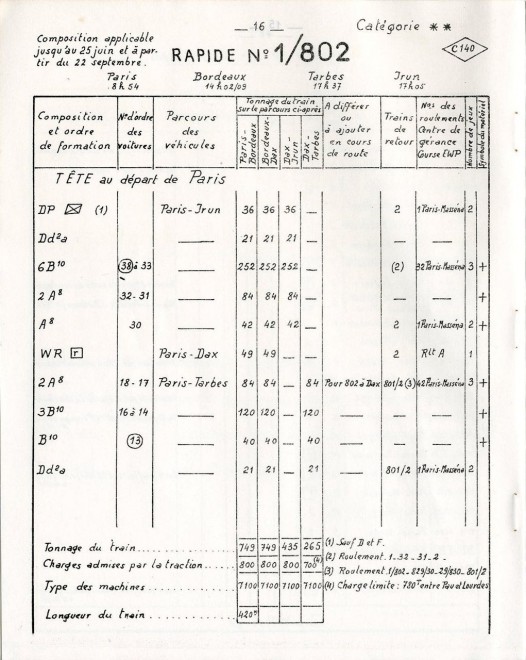 — 16 — Catégorie **
Composition applicable
jusqu'au 25 juin et à par-
tir du 22 septembre.
RAPIDE Nº 1/802
C 140
Paris Bordeaux Tarbes Irun
8h54 14h02/09 17h37 17h05
Composition et ordre de formation | Nºs d'ordre des voitures | Parcours des véhicules | Tonnage du train sur le parcours ci-après | A différer ou à ajouter en cours de route | Trains de retour | Nºs des roulements Centre de gérance Course EWP | Nombre de jeux | Symbole du matériel
Paris-Bordeaux | Bordeaux-Dax | Dax-Irun | Dax Tarbes
TÊTE au départ de Paris
DP (1) Paris-Irun 36 36 36 — 2 1 Paris-Masséna 2
Dd²a —— 21 21 21 — —
6B¹⁰ 38 à 33 —— 252 252 252 — (2) 32 Paris-Masséna 3 +
2A⁸ 32-31 —— 84 84 84 — — — +
A⁸ 30 —— 42 42 42 — 2 1 Paris-Masséna 2 +
WR r Paris-Dax 49 49 — — 2 Rlt A 1
2A⁸ 18-17 Paris-Tarbes 84 84 — 84 Pour 802 à Dax 801/2 (3) 42 Paris-Masséna 3 +
3B¹⁰ 16 à 14 —— 120 120 — 120 — — +
B¹⁰ 13 —— 40 40 — 40 — — +
Dd²a —— 21 21 — 21 801/2 1 Paris-Masséna 2
Tonnage du train 749 749 435 265
Charges admises par la traction 800 800 800 700 (4)
Type des machines 7100 7100 7100 7100
Longueur du train 420ᵐ
(1) Sauf D et F.
(2) Roulement_1_32_31_2_
(3) Roulement_1/802_829/30_29/830_801/2
(4) Charge limite : 780ᵀ entre Pau et Lourdes